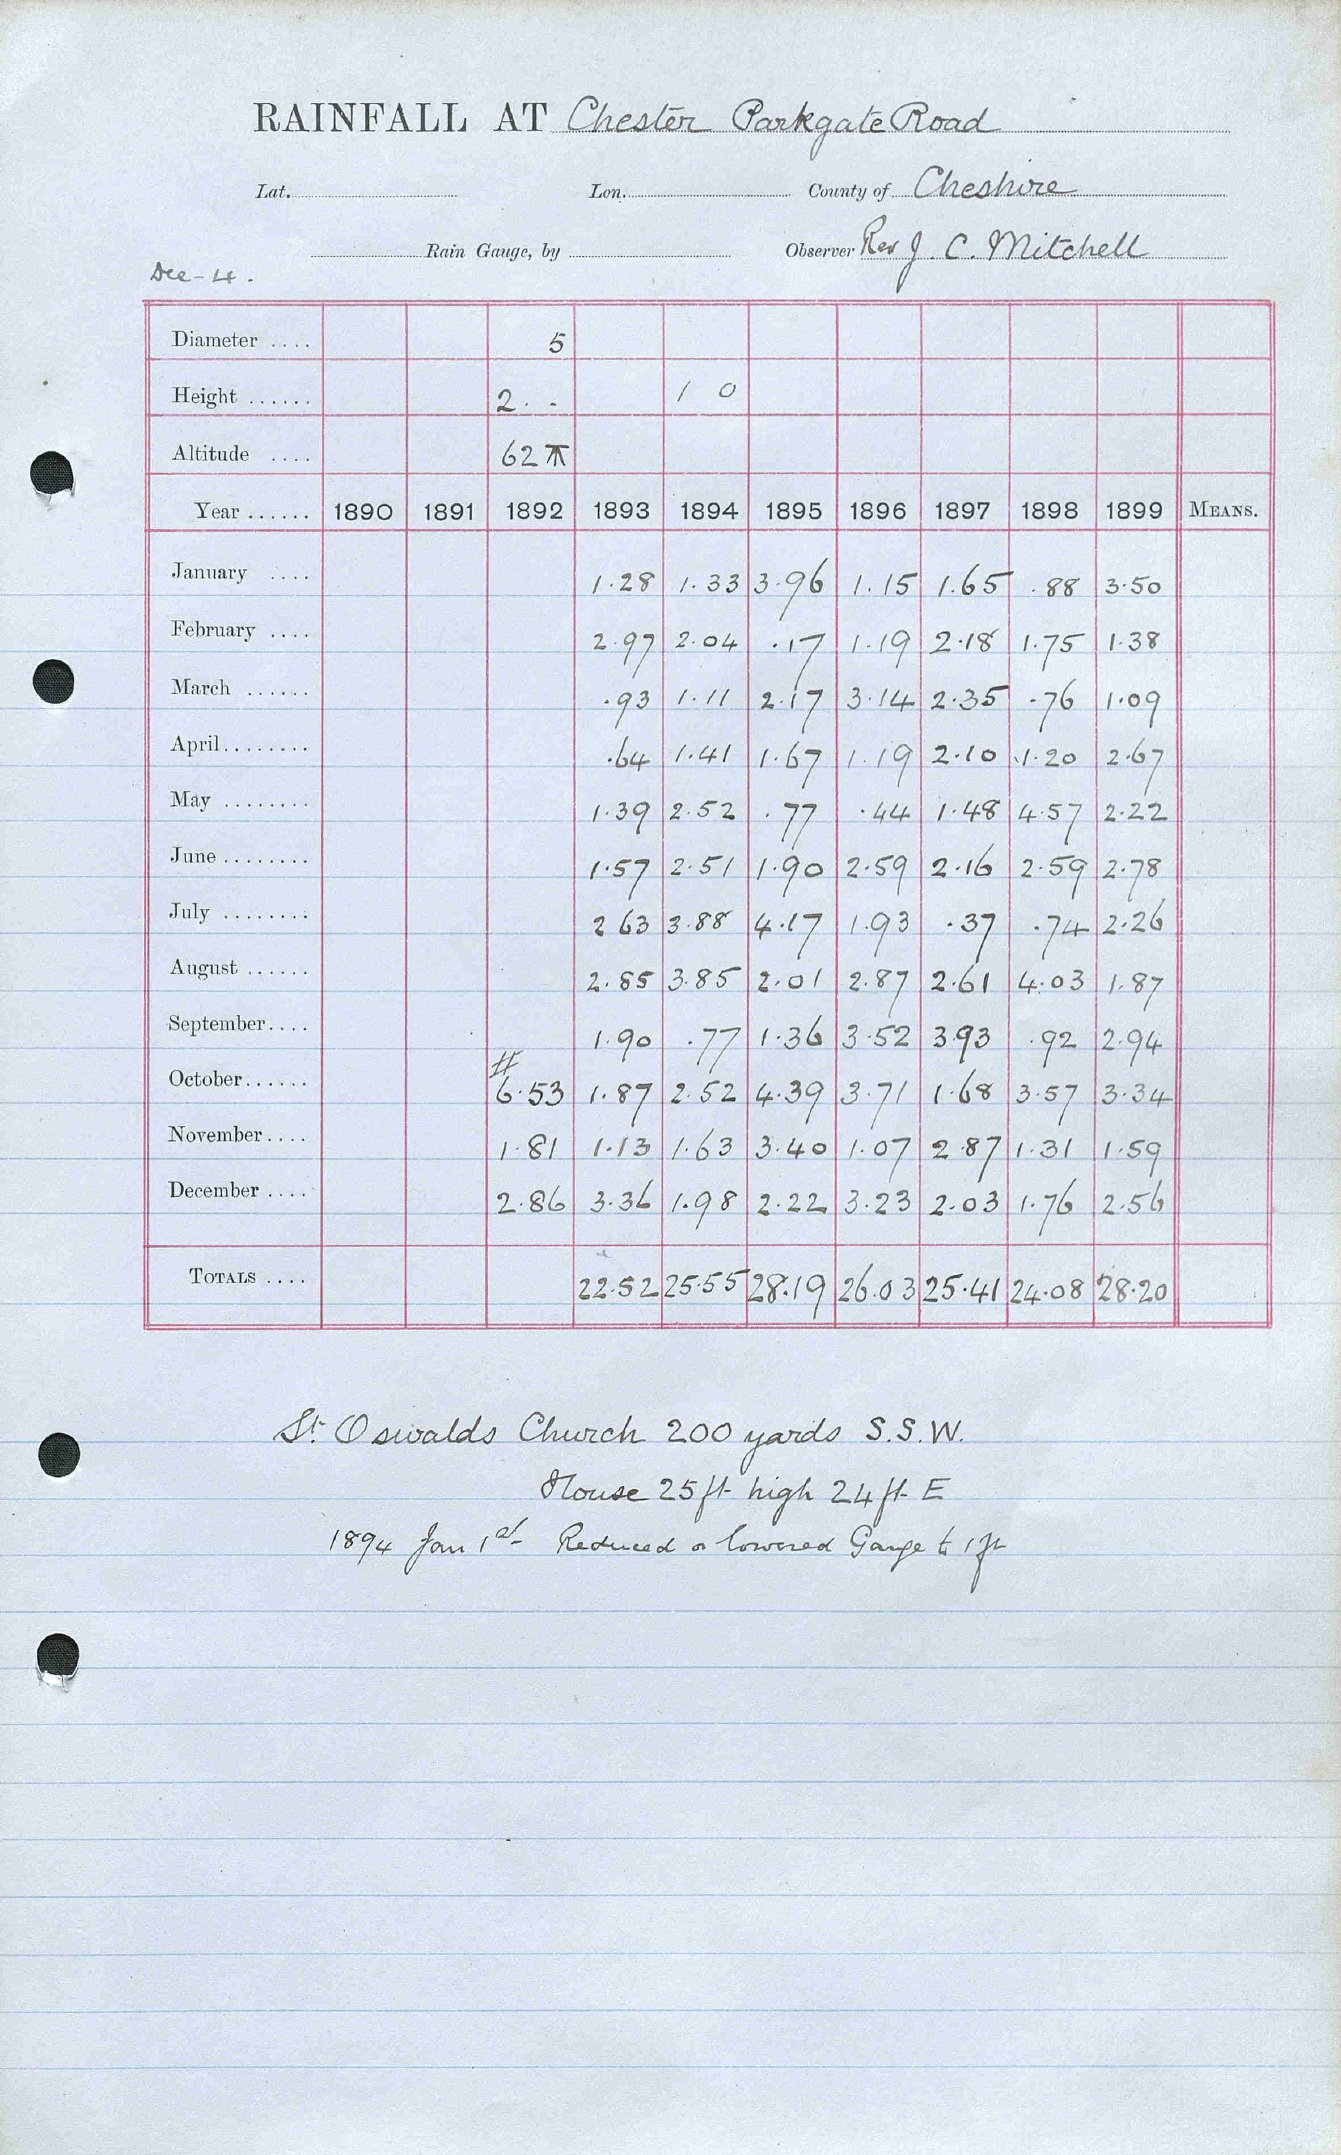 RAINFALL AT Chester Parkgate Road
Lat. Lon. County of Cheshire
Rain Gauge, by Observer Rev J. C. Mitchell
Dec-4.
Diameter .... 5
Height ...... 2. - 1 0
Altitude .... 62
Year ...... 1890 1891 1892 1893 1894 1895 1896 1897 1898 1899 MEANS.
January .... 1.28 1.33 3.96 1.15 1.65 .88 3.50
February .... 2.97 2.04 .17 1.19 2.18 1.75 1.38
March ...... .93 1.11 2.17 3.14 2.35 .76 1.09
April........ .64 1.41 1.67 1.19 2.10 1.20 2.67
May ........ 1.39 2.52 .77 .44 1.48 4.57 2.22
June ........ 1.57 2.51 1.90 2.59 2.16 2.59 2.78
July ........ 2 63 3.88 4.17 1.93 .37 .74 2.26
August ...... 2.85 3.85 2.01 2.87 2.61 4.03 1.87
September.... 1.90 .77 1.36 3.52 3.93 .92 2.94
#
October...... 6.53 1.87 2.52 4.39 3.71 1.68 3.57 3.34
November.... 1.81 1.13 1.63 3.40 1.07 2.87 1.31 1.59
December .... 2.86 3.36 1.98 2.22 3.23 2.03 1.76 2.56
TOTALS .... 22.52 25.55 28.19 26.03 25.41 24.08 28.20
St Oswalds Church 200 yards S.S.W.
House 25 ft high 24 ft E
1894 Jan 1st Reduced or lowered Gauge to 1 ft